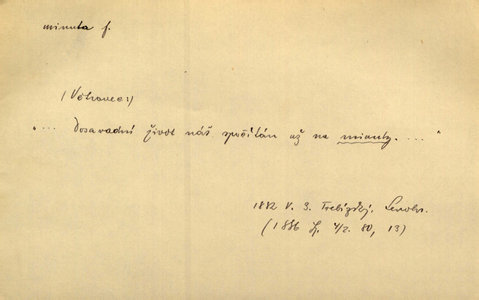 minuta f.
(Votrowec:)
"... Dosavadní život náš spočítán až na minuty. ... "
1882 V. B. Třebízský.
(1886 4/2. 80, 13)